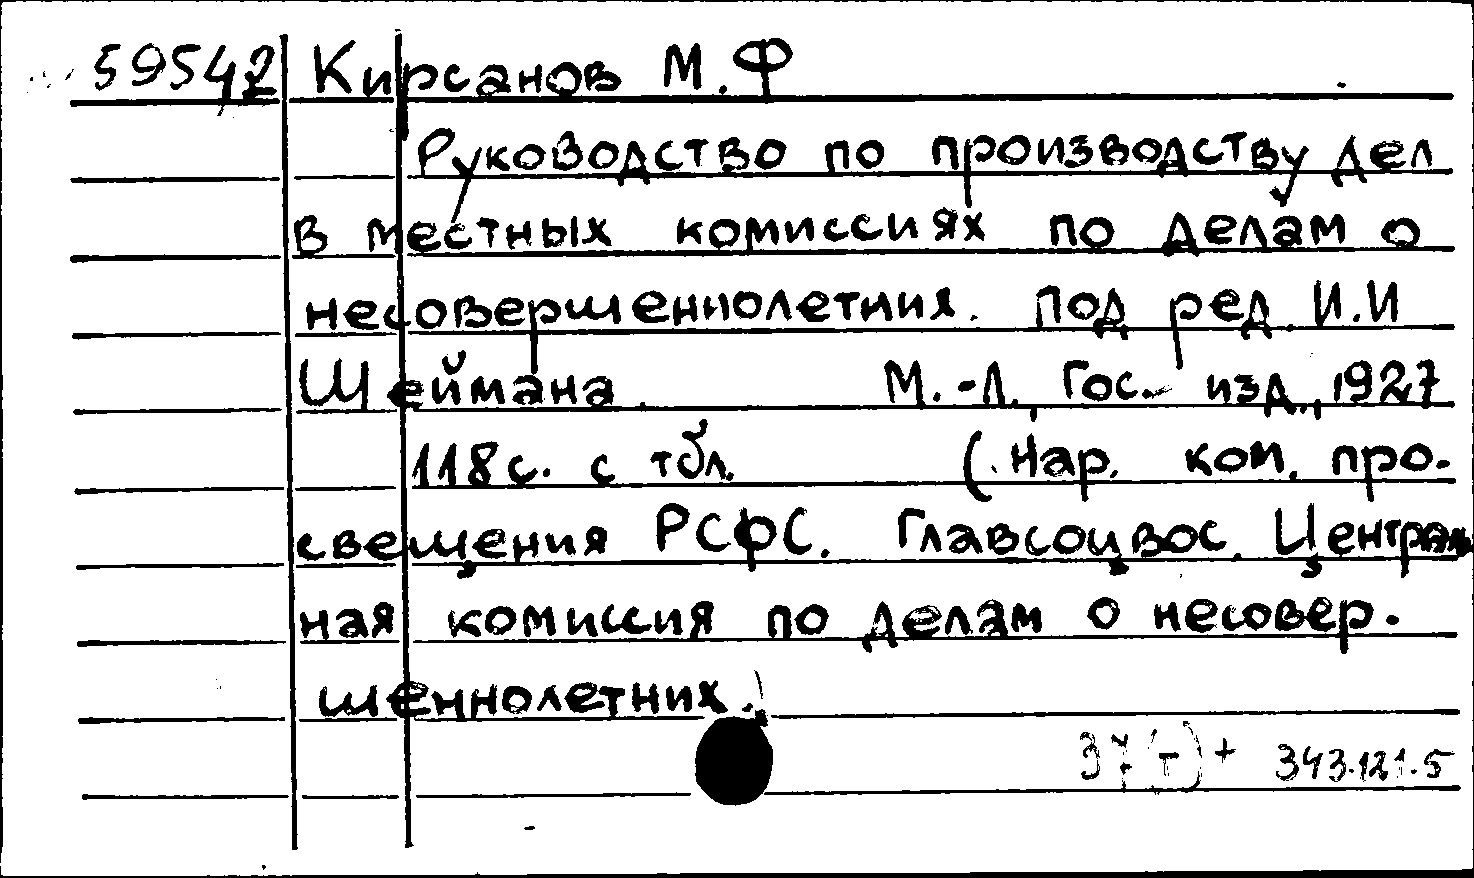 59542 Кирсанов М.Ф
Руководство по производству дел
в местных комиссиях по делам о
несовершеннолетния. Под ред. И.И
Шеймана. М.-Л. Гос. изд., 1927
118с. с тбл. (Нар. ком. про-
свещения РСФС. Главсоцвос. Централь
ная комиссия по делам о несовер-
шеннолетних.)
37(т) + 343.121.5